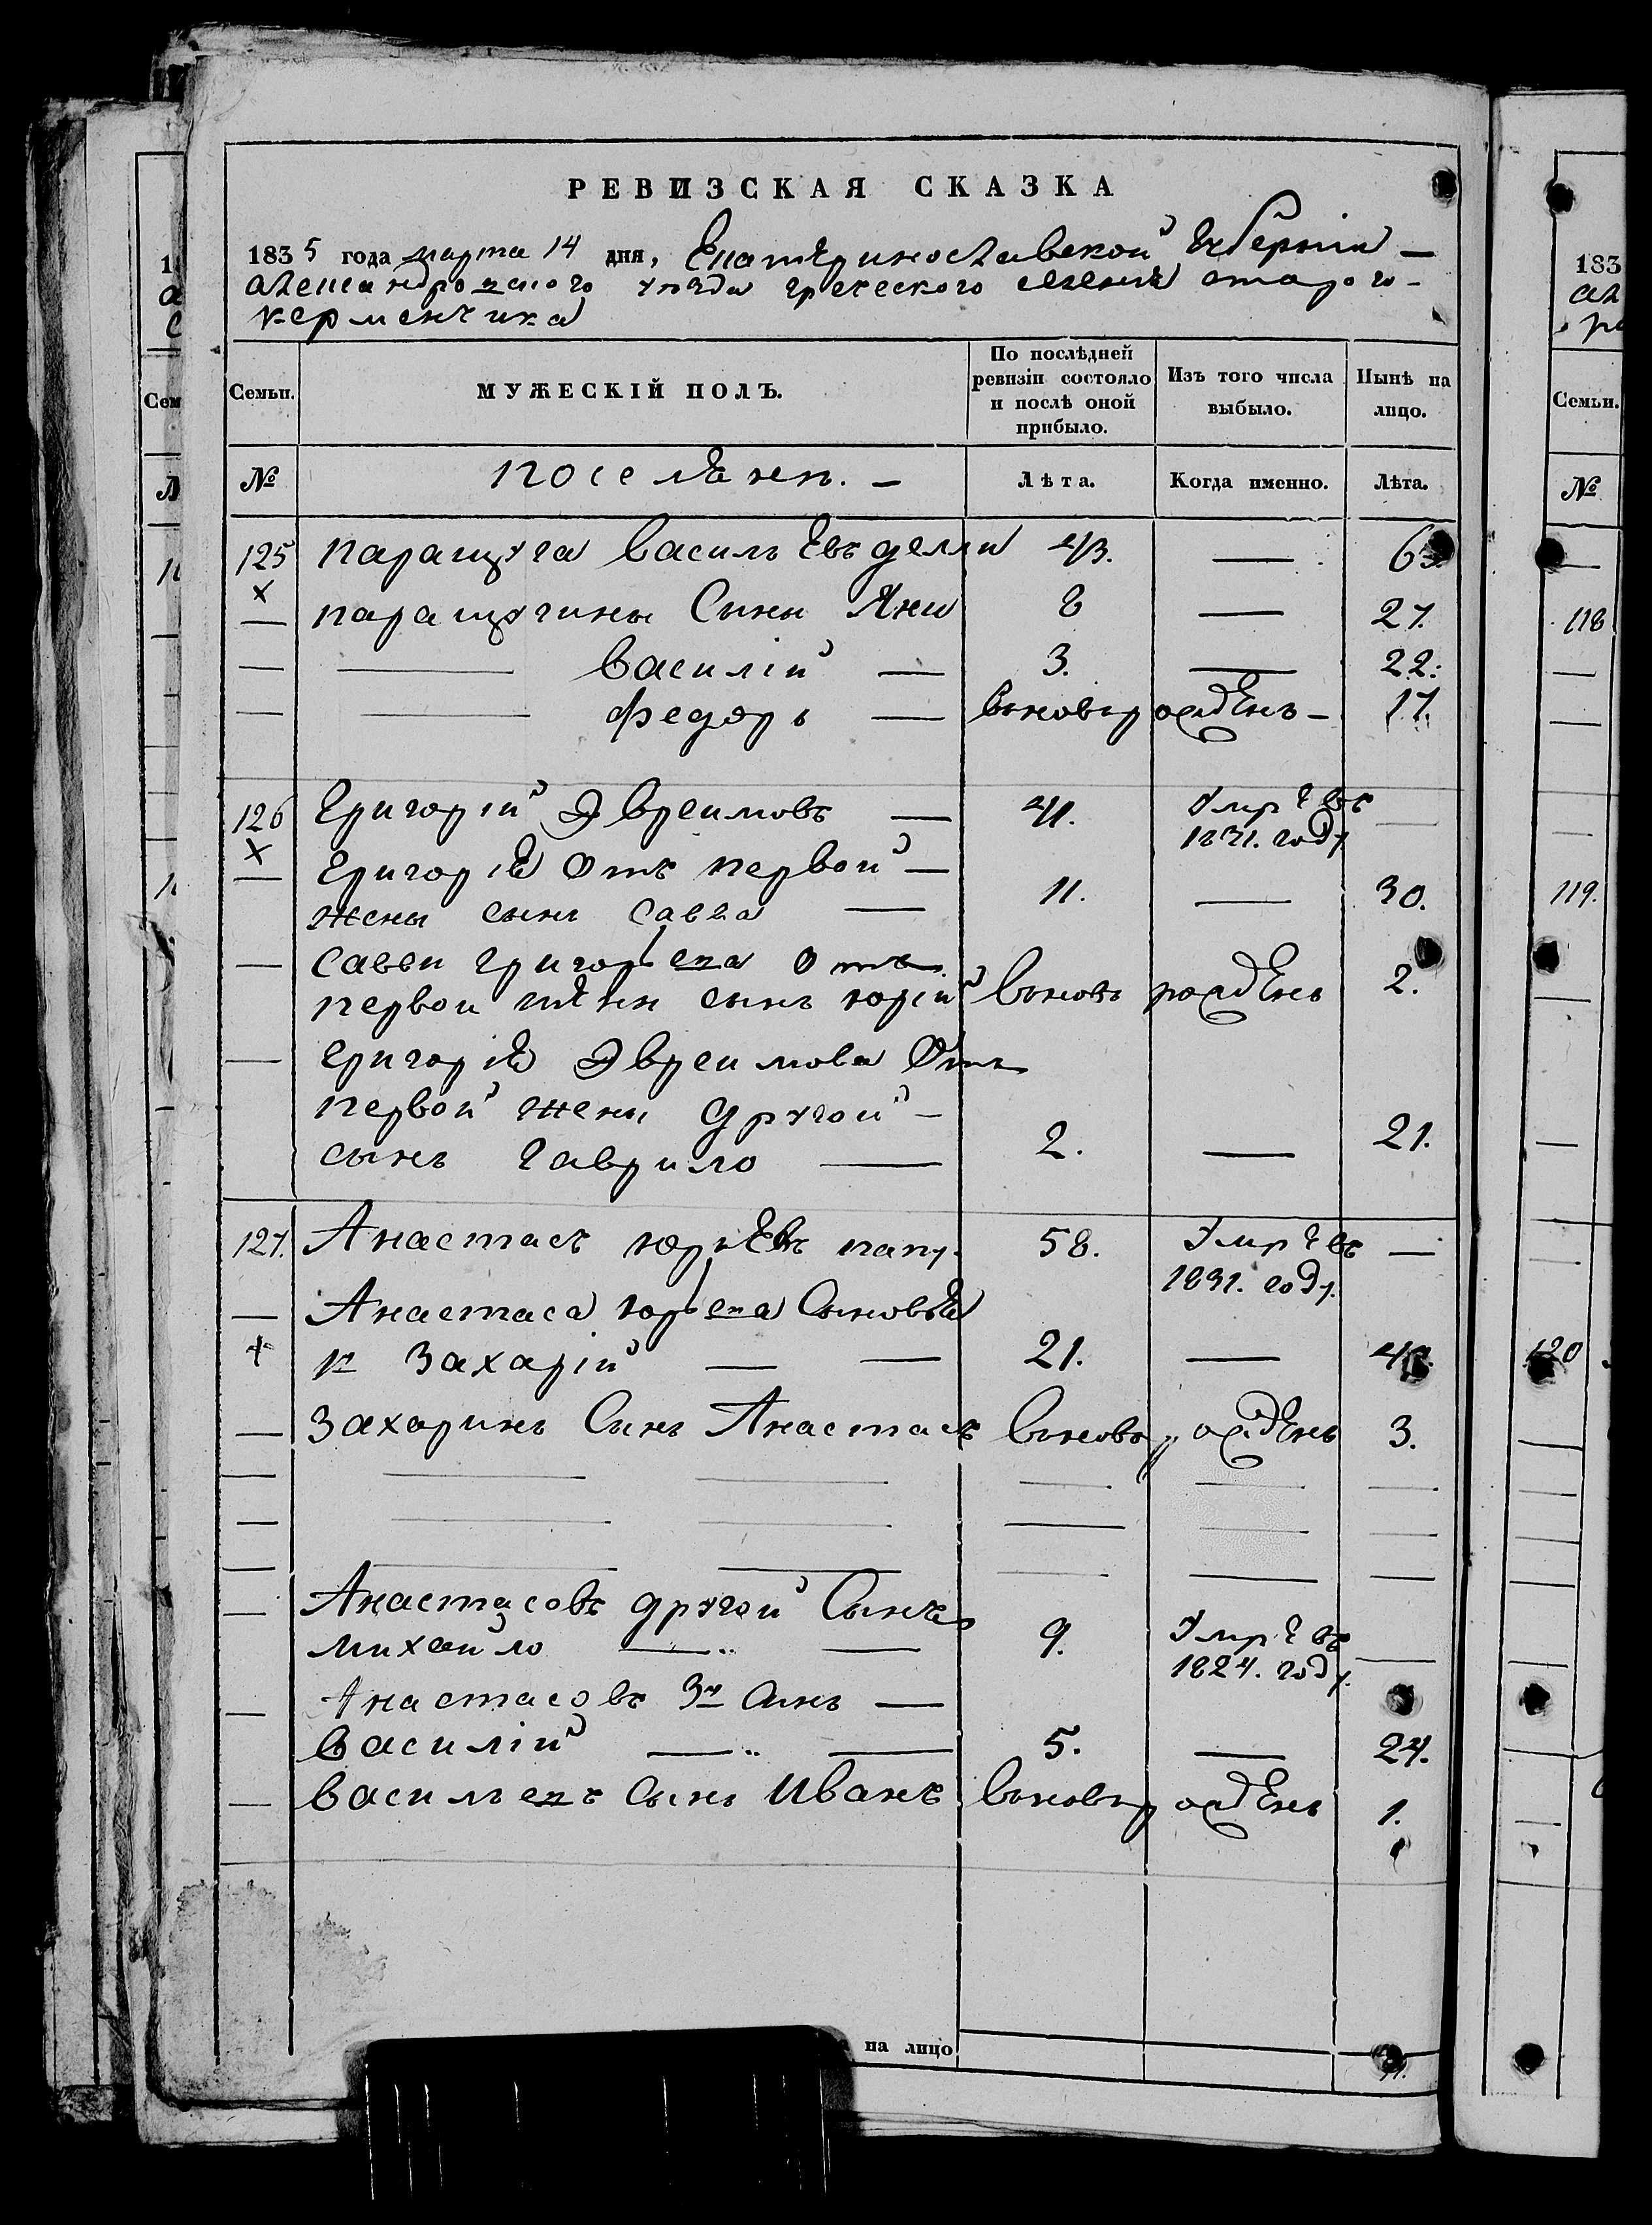 РЕВИЗСКАЯ СКАЗКА
1835 года марта 14 дня, Екатеринославской Губернии —
александровского уезда греческого селения старого-
керменчика
Семьи. МУЖЕСКІЙ ПОЛЪ. По послѣдней ревизіи состояло и послѣ оной прибыло. Изъ того числа выбыло. Нынѣ на лицо.
№ поселяне. — Лѣта. Когда именно. Лѣта.
125 паращука Василь 43. —
— паращукины Сыны Яни 8 — 27.
— — Василій — 3. — 22.
— — Федоръ — вновь рожденъ — 17.
126 Григорій Эвреимовъ — 41. Умрѣ въ —
1831. году
— Григорія Отъ первой —
жены сынъ Савва — 11. — 30.
— Саввы Григорьева Отъ
первой жены сынъ юрій вновь рожденъ 2.
— Григорія Эвреимова Отъ
первой жены другой —
сынъ Гаврило — 2. — 21.
127. Анастасъ юрьевъ 58. Умрѣ въ —
1831. году.
— Анастаса юрьева Сыновья
1й Захарій — — 21. —
— Захаринъ Сынъ Анастасъ вновь рожденъ 3.
— — — — — —
— — — — — —
— — — — — —
— Анастасовъ другой Сынъ
михайло — — 9. Умрѣ въ —
1824. году.
— Анастасовъ 3й Сынъ —
Василій — — 5. — 24.
— Васильевъ Сынъ Иванъ вновь рожденъ 1.
на лицо
183
Семьи.
№
118
119.
120